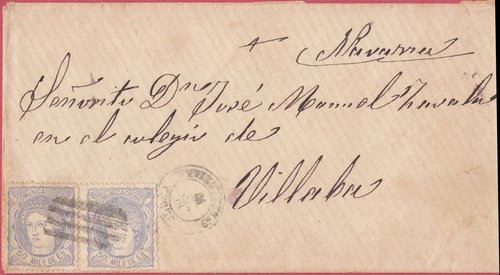 Navarra
Señorito Dn José Manuel Zavala
en el colegio de
Villaba
COMUNICACIONES COMUNICACIONES
50 MILS DE Eo 50 MILS DE Eo